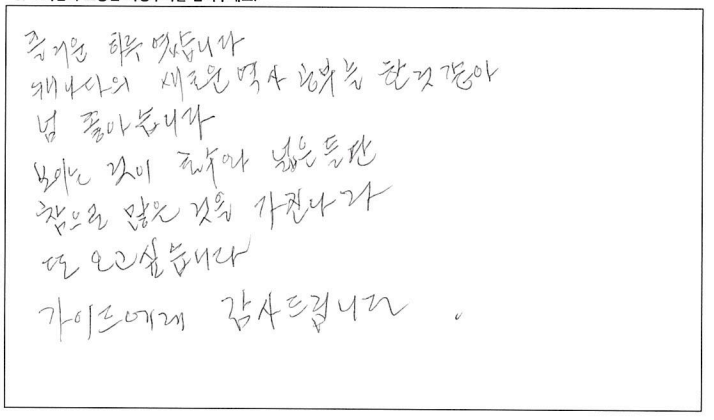 즐거운 하루 였습니다
캐나다의 새로운 역사 공부를 한것 같아
넘 좋아습니다
보이는 것이 호수와 넓은 들판
참으로 많은 것을 가진나라
또 오고싶습니다
가이드에게 감사드립니다.